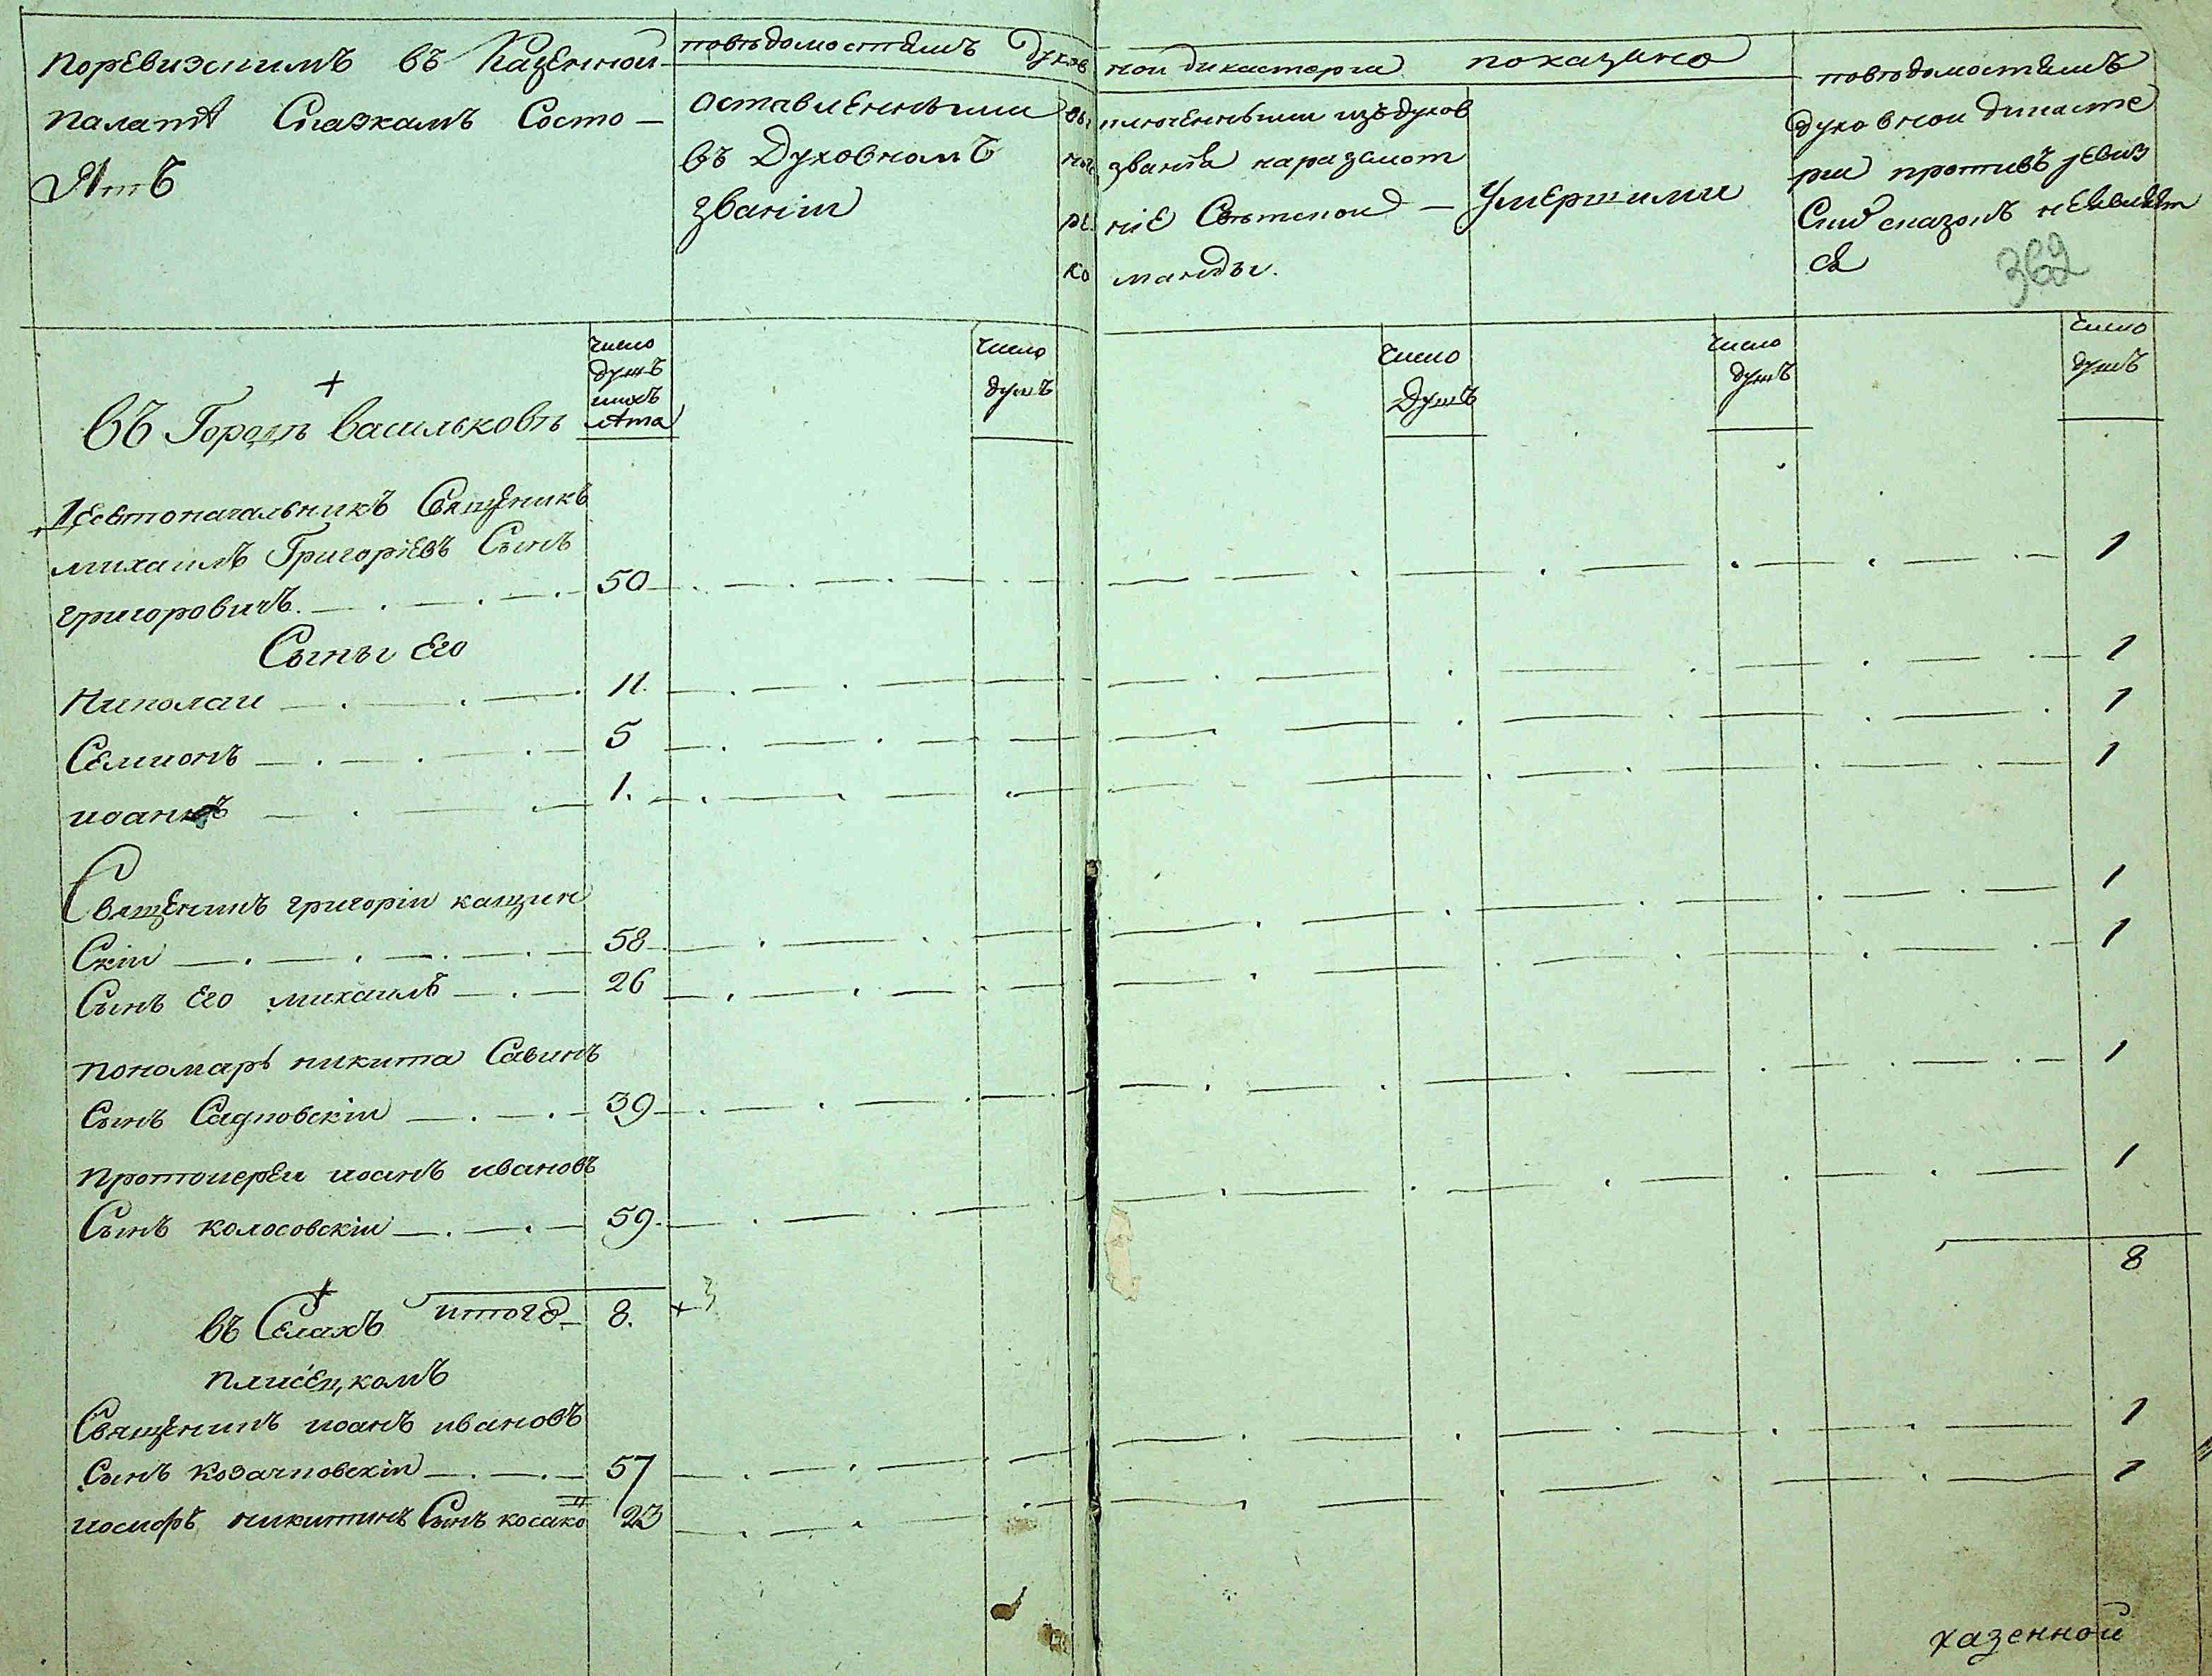 поревизскимъ въ Казенной
палатѣ Сказкамъ Состо—
Ятъ
повѣдомостямъ Духов
оставленными
въ Духовномъ
званіи
ной дикастеріи показано
ключенными изъ духов
званія наразсмот
ніе Свѣтской —
команды.
Умершими
повѣдомостямъ
духовной дикасте
ріи противъ ревиз
Скихъ сказокъ неявляет
ся
362
число
душъ
ихъ
лѣта
число
душъ
число
Душъ
число
душъ
число
душъ
въ Городѣ васильковѣ
Мѣстоначальникъ Священикъ
михаилъ Григоріевъ Сынъ
григоровичъ. 50 1
Сыны Его
Николай 11. 1
Семионъ 5 1
иоаннъ 1. 1
Священикъ григорій кащин
Скій 58 1
Сынъ Его михаилъ 26 1
пономарь никита Савинъ
Сынъ Садковскій 39 1
протоиерей иоанъ ивановъ
Сынъ колосовскій 59. 1
8
итого 8. + 3
въ Селахъ
плисецкомъ
Священикъ иоанъ ивановъ
Сынъ козачковскій 57 1
иосифъ никитинъ Сынъ косако 23 1
казенной